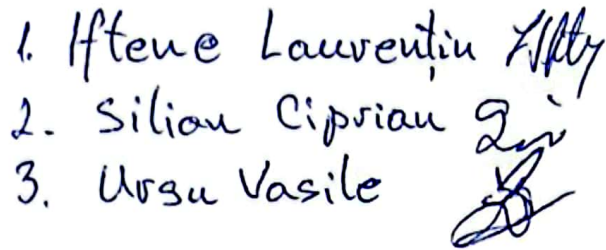 1. Iftene Laurențiu
2. Silion Ciprian
3. Ursu Vasile